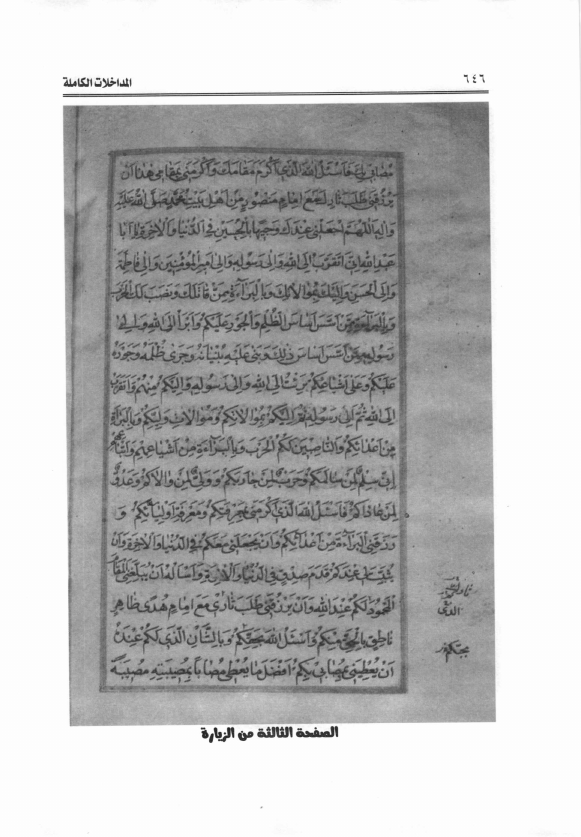 ٦٤٦
المداخلات الكاملة
مصابي بك فاسئل الله الذي اكرم مقامك واكرمني بمقامي هذا ان
يرزقني طلب ثارك مع امام منصور من اهل بيت محمد صلى الله عليه
واله اللهم اجعلني عندك وجيها بالحسين في الدنيا والاخرة يا ابا
عبد الله اني اتقرب الى الله والى رسوله والى امير المؤمنين والى فاطمة
والى الحسن واليك بموالاتك وبالبراءة ممن قاتلك ونصب لك الحرب
وبالبراءة ممن اسس اساس الظلم والجور عليكم وابرا الى الله والى
رسوله ممن اسس اساس ذلك وبنى عليه بنيانه وجرى ظلمه وجوره
عليكم وعلى اشياعكم برئت الى الله والى رسوله واليكم منهم واتقرب
الى الله ثم الى رسوله ثم اليكم بموالاتكم وموالات وليكم وبالبراءة
من اعدائكم والناصبين لكم الحرب وبالبراءة من اشياعهم واتباعهم
اني سلم لمن سالمكم وحرب لمن حاربكم وولي لمن والاكم وعدو
لمن عاداكم فاسئل الله الذي اكرمني بمعرفتكم ومعرفة اوليائكم و
رزقني البراءة من اعدائكم وان يجعلني معكم في الدنيا والاخرة وان
يثبت لي عندكم قدم صدق في الدنيا والاخرة واساله ان يبلغني المقام
المحمود لكم عند الله وان يرزقني طلب ثاري مع امام هدى ظاهر
ناطق بالحق منكم واسئل الله بحقكم وبالشان الذي لكم عنده
ان يعطيني بمصابي بكم افضل ما يعطي مصابا بمصيبته مصيبة
الذي
بحقكم
الصفحة الثالثة من الزيارة